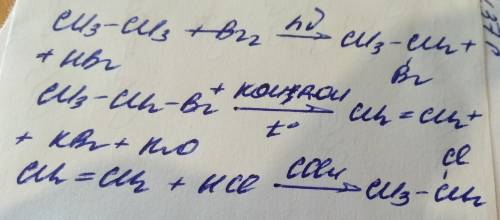 CH₃-CH₃ + Br₂ →hν CH₃-CH₂ +
Br
+ HBr
CH₃-CH₂-Br + →t° CH₂=CH₂ +
+ KBr + H₂O
Cl
CH₂=CH₂ + HCl →CCl₄ CH₃-CH₂